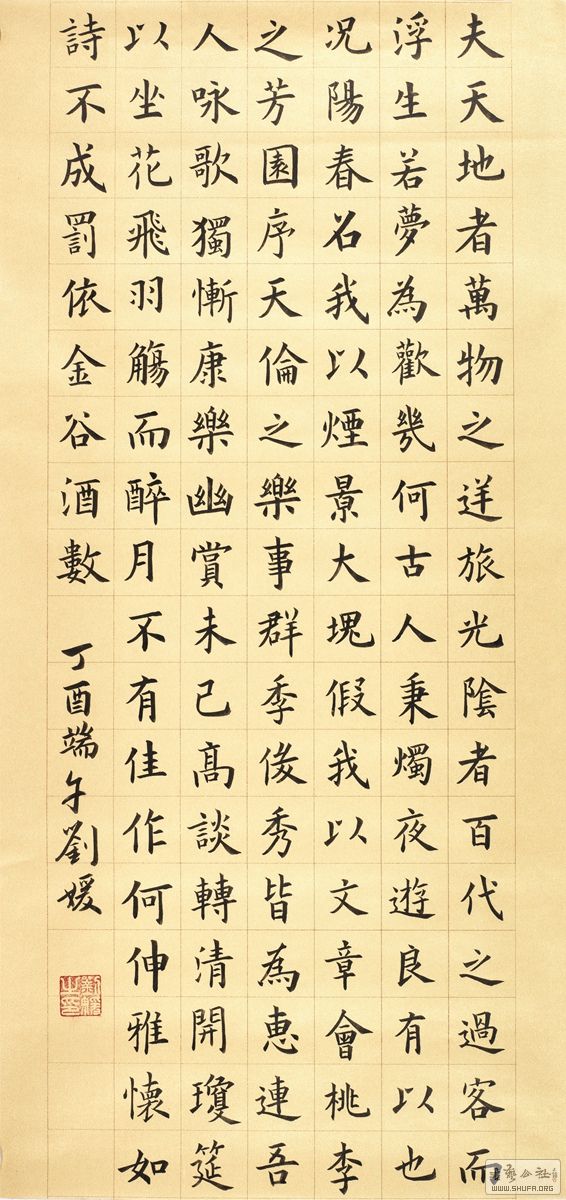 夫天地者萬物之逆旅光陰者百代之過客而
浮生若夢為歡幾何古人秉燭夜遊良有以也
况陽春召我以煙景大塊假我以文章會桃李
之芳園序天倫之樂事群季俊秀皆為惠連吾
人咏歌獨慚康樂幽賞未已高談轉清開瓊筵
以坐花飛羽觴而醉月不有佳作何伸雅懷如
詩不成罰依金谷酒數
丁酉端午劉媛
WWW.SHUFA.ORG